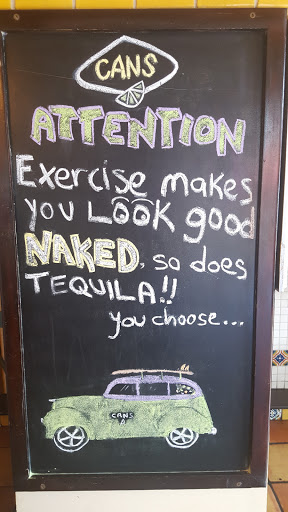 CANS
ATTENTION
Exercise makes
you LOOK good
NAKED, so does
TEQUILA!!
you choose...
CANS